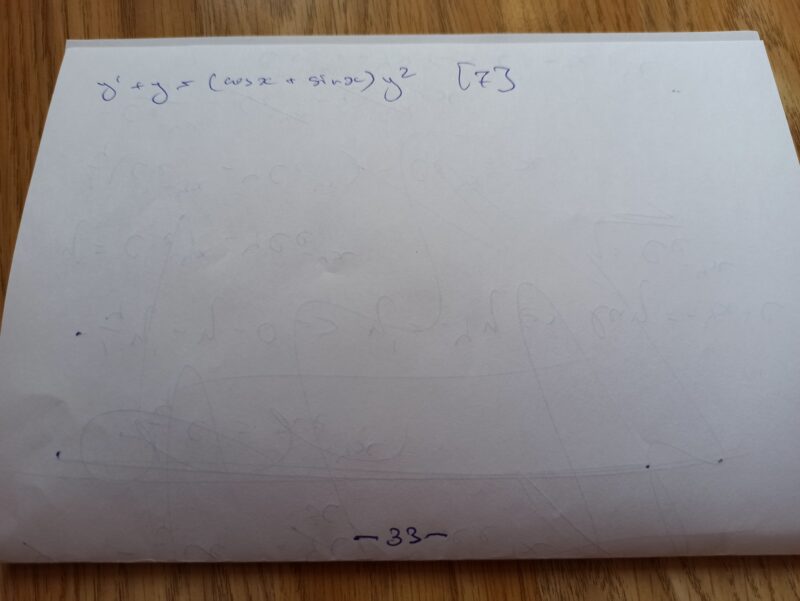 y' + y = (cosx + sinx) y² [7]
- 33 -